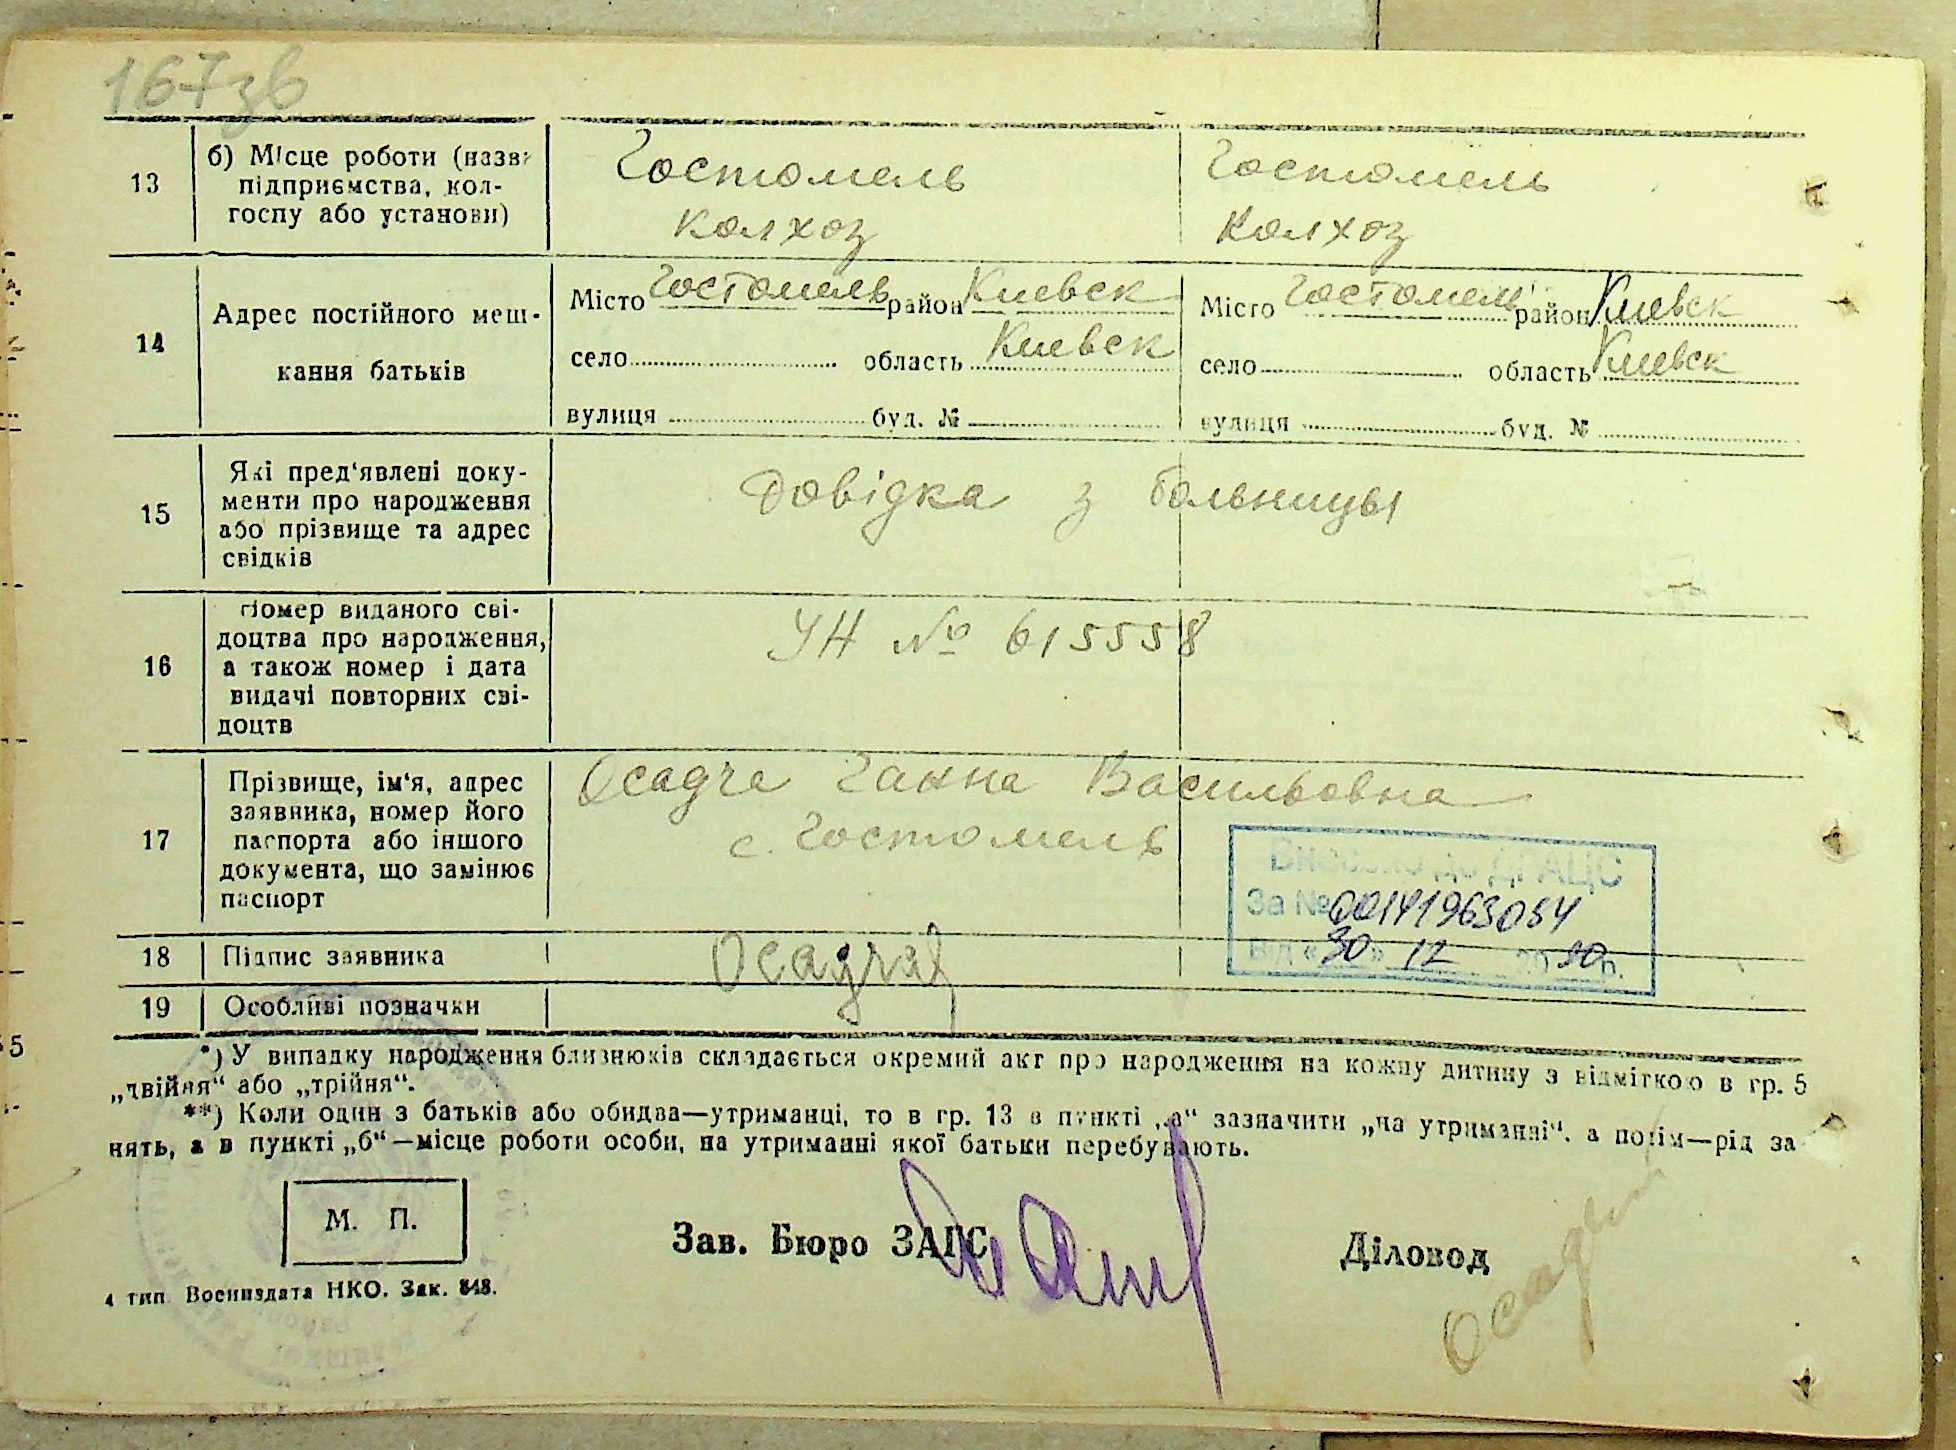 167зв
13
б) Місце роботи (назва
підприємства, кол-
госпу або установи)
Гостомель
колхоз
Гостомель
колхоз
14
Адрес постійного меш-
кання батьків
Місто Гостомель район Киевск
село область Киевск
вулиця буд. №
Місто Гостомель район Киевск
село область Киевск
вулиця буд. №
15
Які пред'явлені доку-
менти про народження
або прізвище та адрес
свідків
Довідка з больницы
16
Номер виданого сві-
доцтва про народження,
а також номер і дата
видачі повторних сві-
доцтв
УН № 615558
17
Прізвище, ім'я, адрес
заявника, номер його
паспорта або іншого
документа, що замінює
паспорт
Осадча Ганна Васильовна
с. Гостомель
Внесено до ДРАЦС
За № 00141963054
Від «30» 12 2020р.
18
Підпис заявника
Осадчая
19
Особливі позначки
*) У випадку народження близнюків складається окремий акт про народження на кожну дитину з відміткою в гр. 5
„двійня“ або „трійня“.
**) Коли один з батьків або обидва—утриманці, то в гр. 13 в пункті „а“ зазначити „на утриманні“, а потім—рід за
нять, а в пункті „б“—місце роботи особи, на утриманні якої батьки перебувають.
М. П.
Зав. Бюро ЗАГС
Діловод
4 тип. Воениздата НКО. Зак. 848.